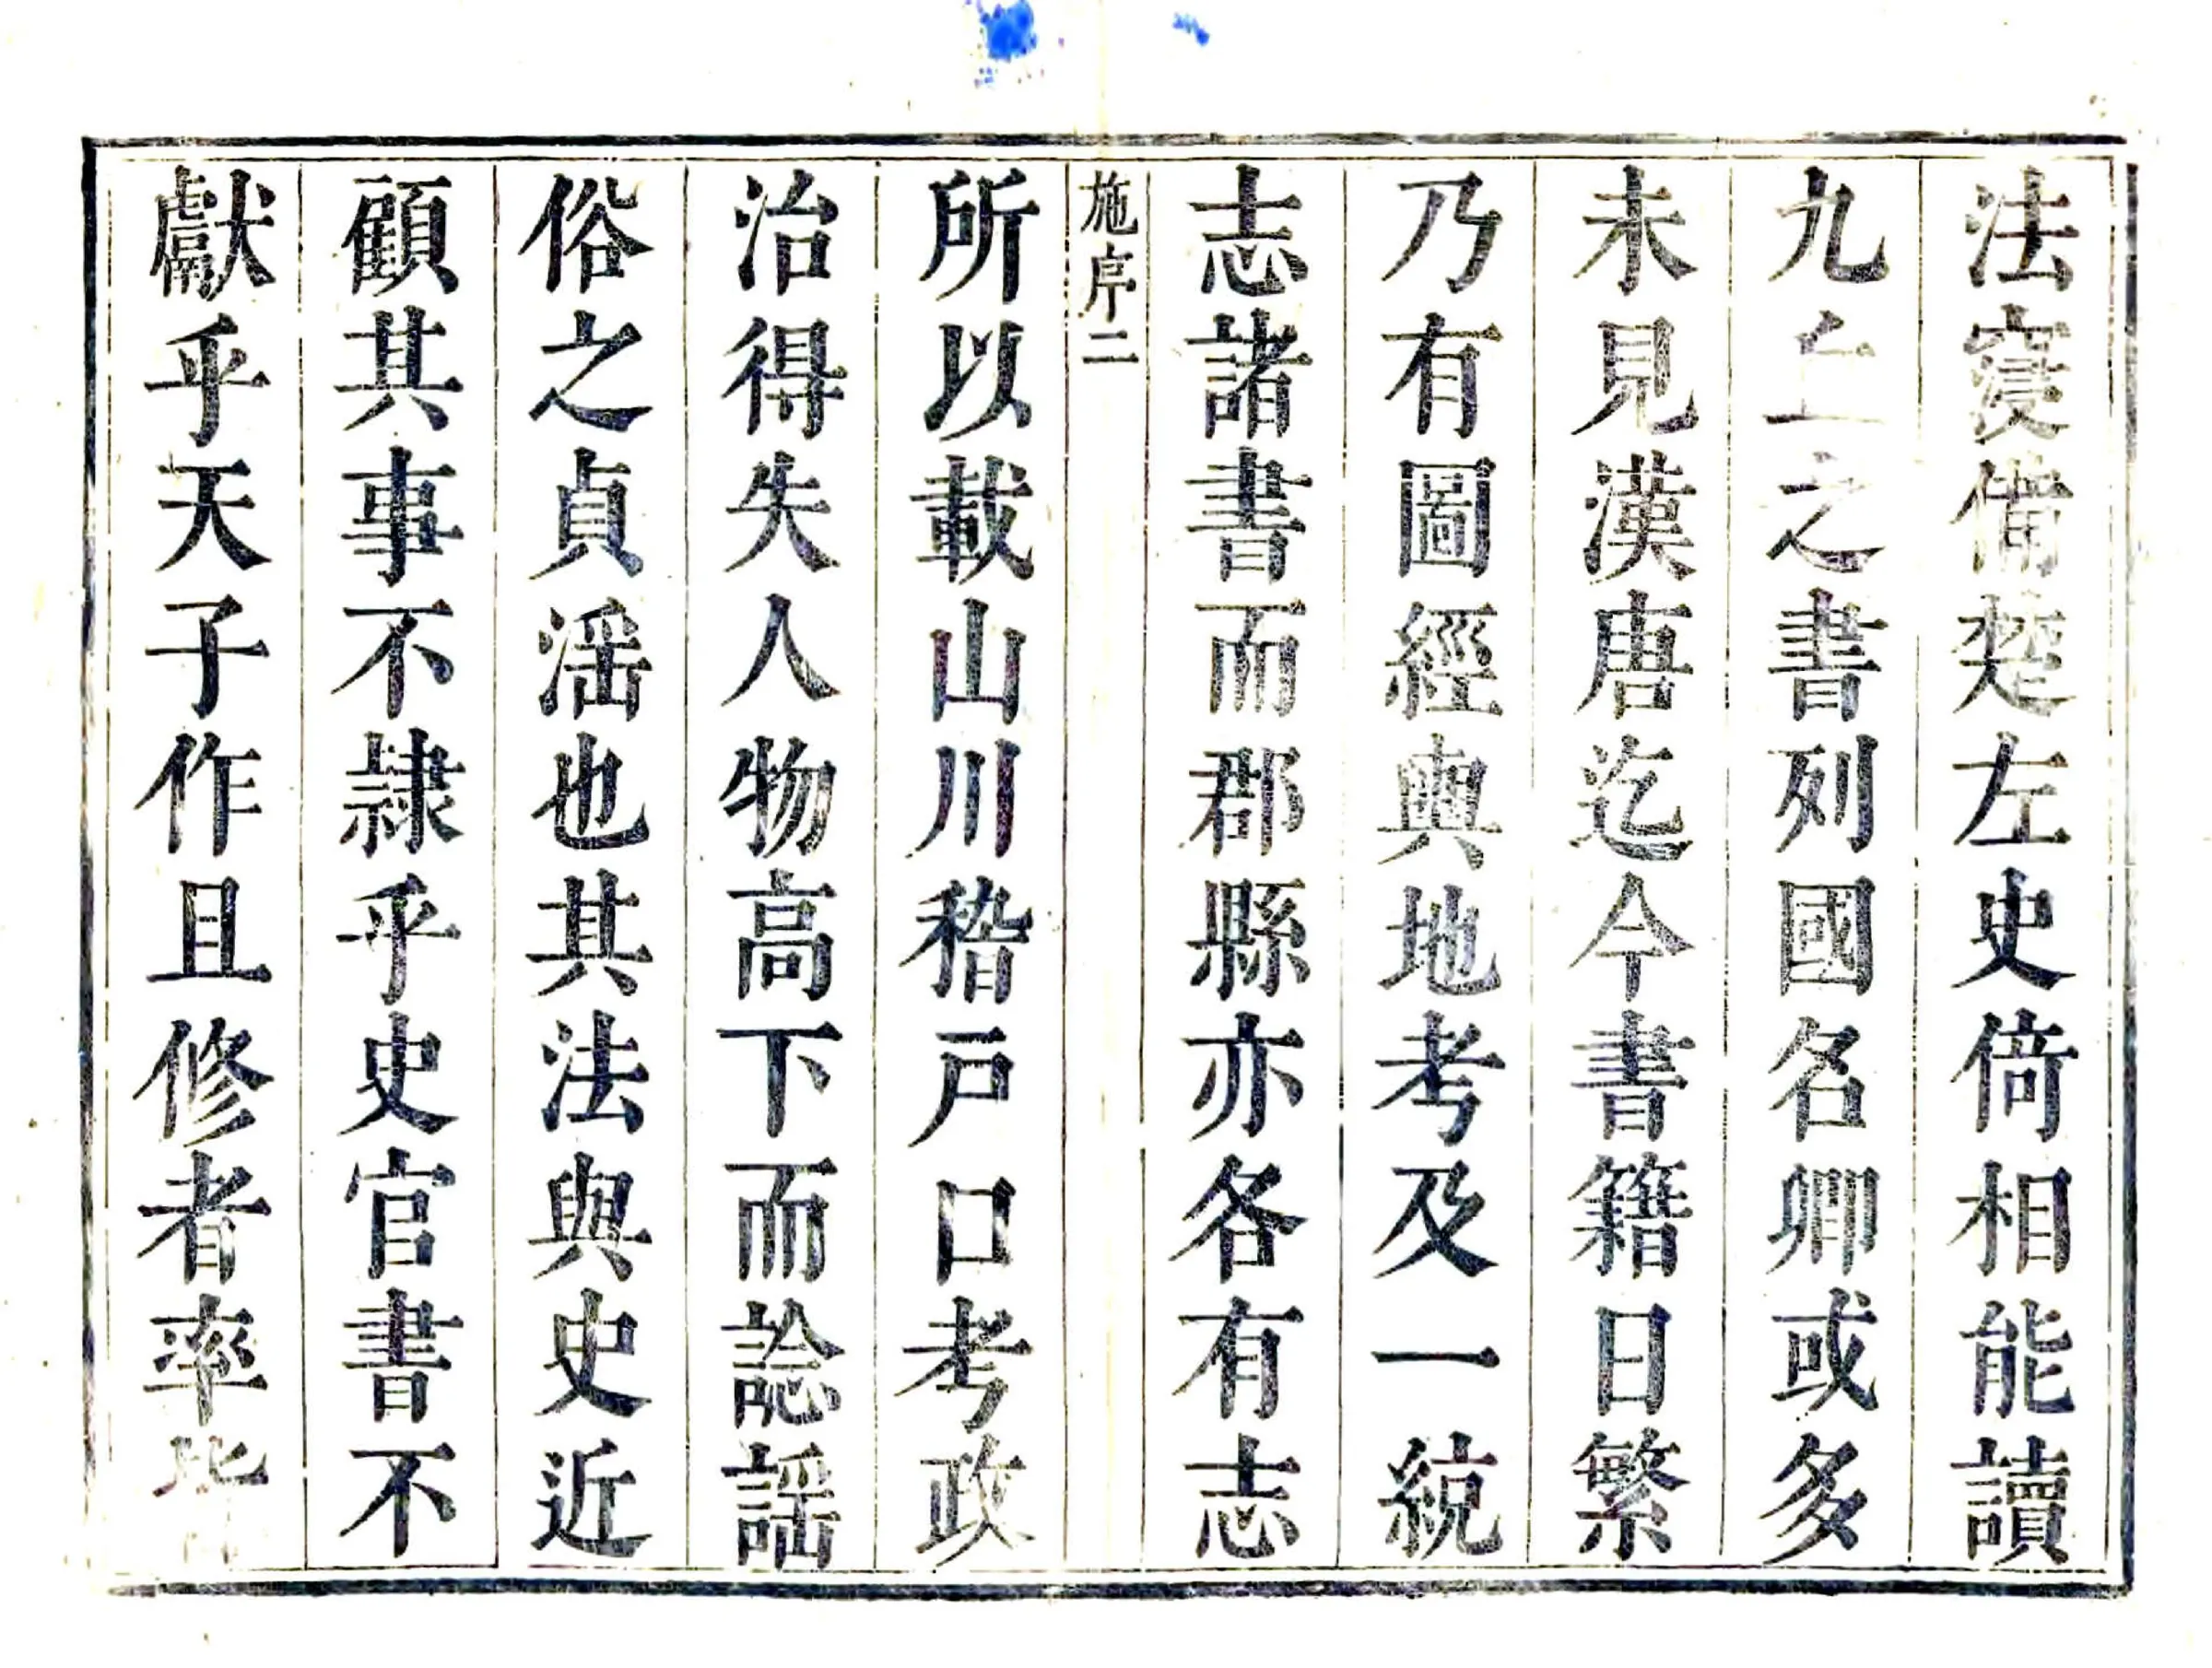 法寖備楚左史倚相能讀
九丘之書列國名卿或多
未見漢唐迄今書籍日繁
乃有圖經輿地考及一統
志諸書而郡縣亦各有志
施序二
所以載山川稽戶口考政
治得失人物高下而諗謡
俗之貞滛也其法與史近
顧其事不隷乎史官書不
獻乎天子作且修者率